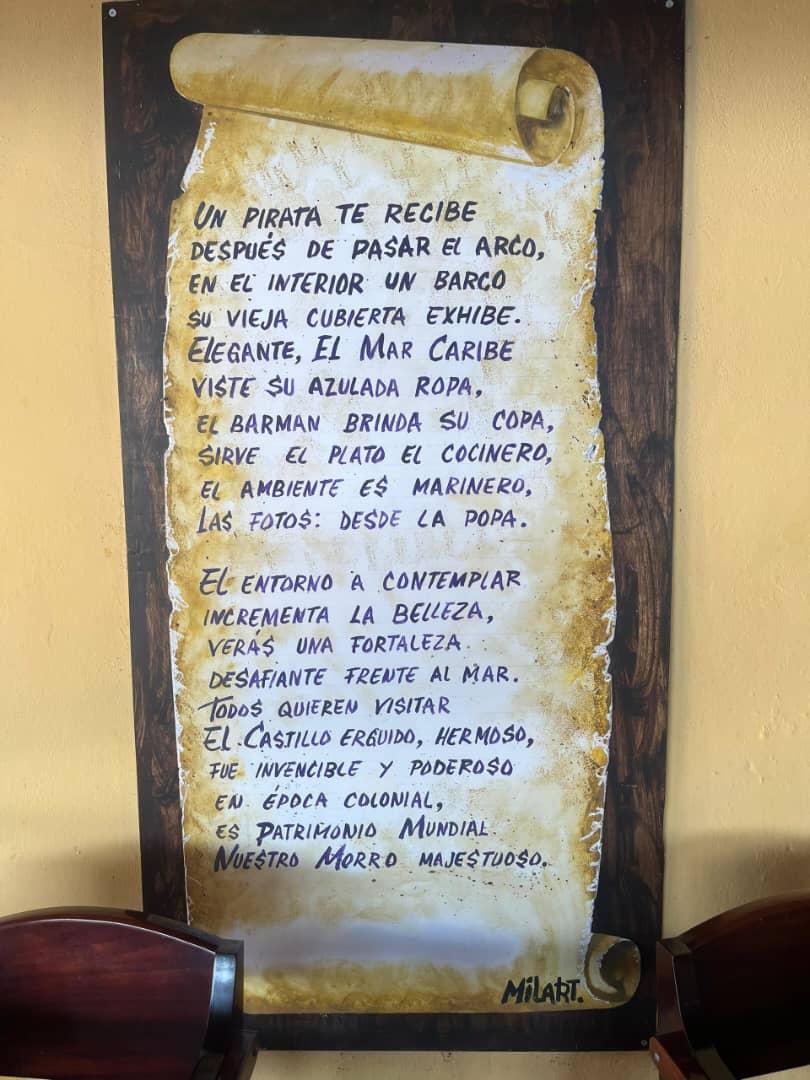 Un pirata te recibe
después de pasar el arco,
en el interior un barco
su vieja cubierta exhibe.
Elegante, El Mar Caribe
viste su azulada ropa,
el barman brinda su copa,
sirve el plato el cocinero,
el ambiente es marinero,
Las fotos: desde la popa.

El entorno a contemplar
incrementa la belleza,
verás una fortaleza
desafiante frente al mar.
Todos quieren visitar
El Castillo erguido, hermoso,
fue invencible y poderoso
en época colonial,
es Patrimonio Mundial
Nuestro Morro majestuoso.
MilART.